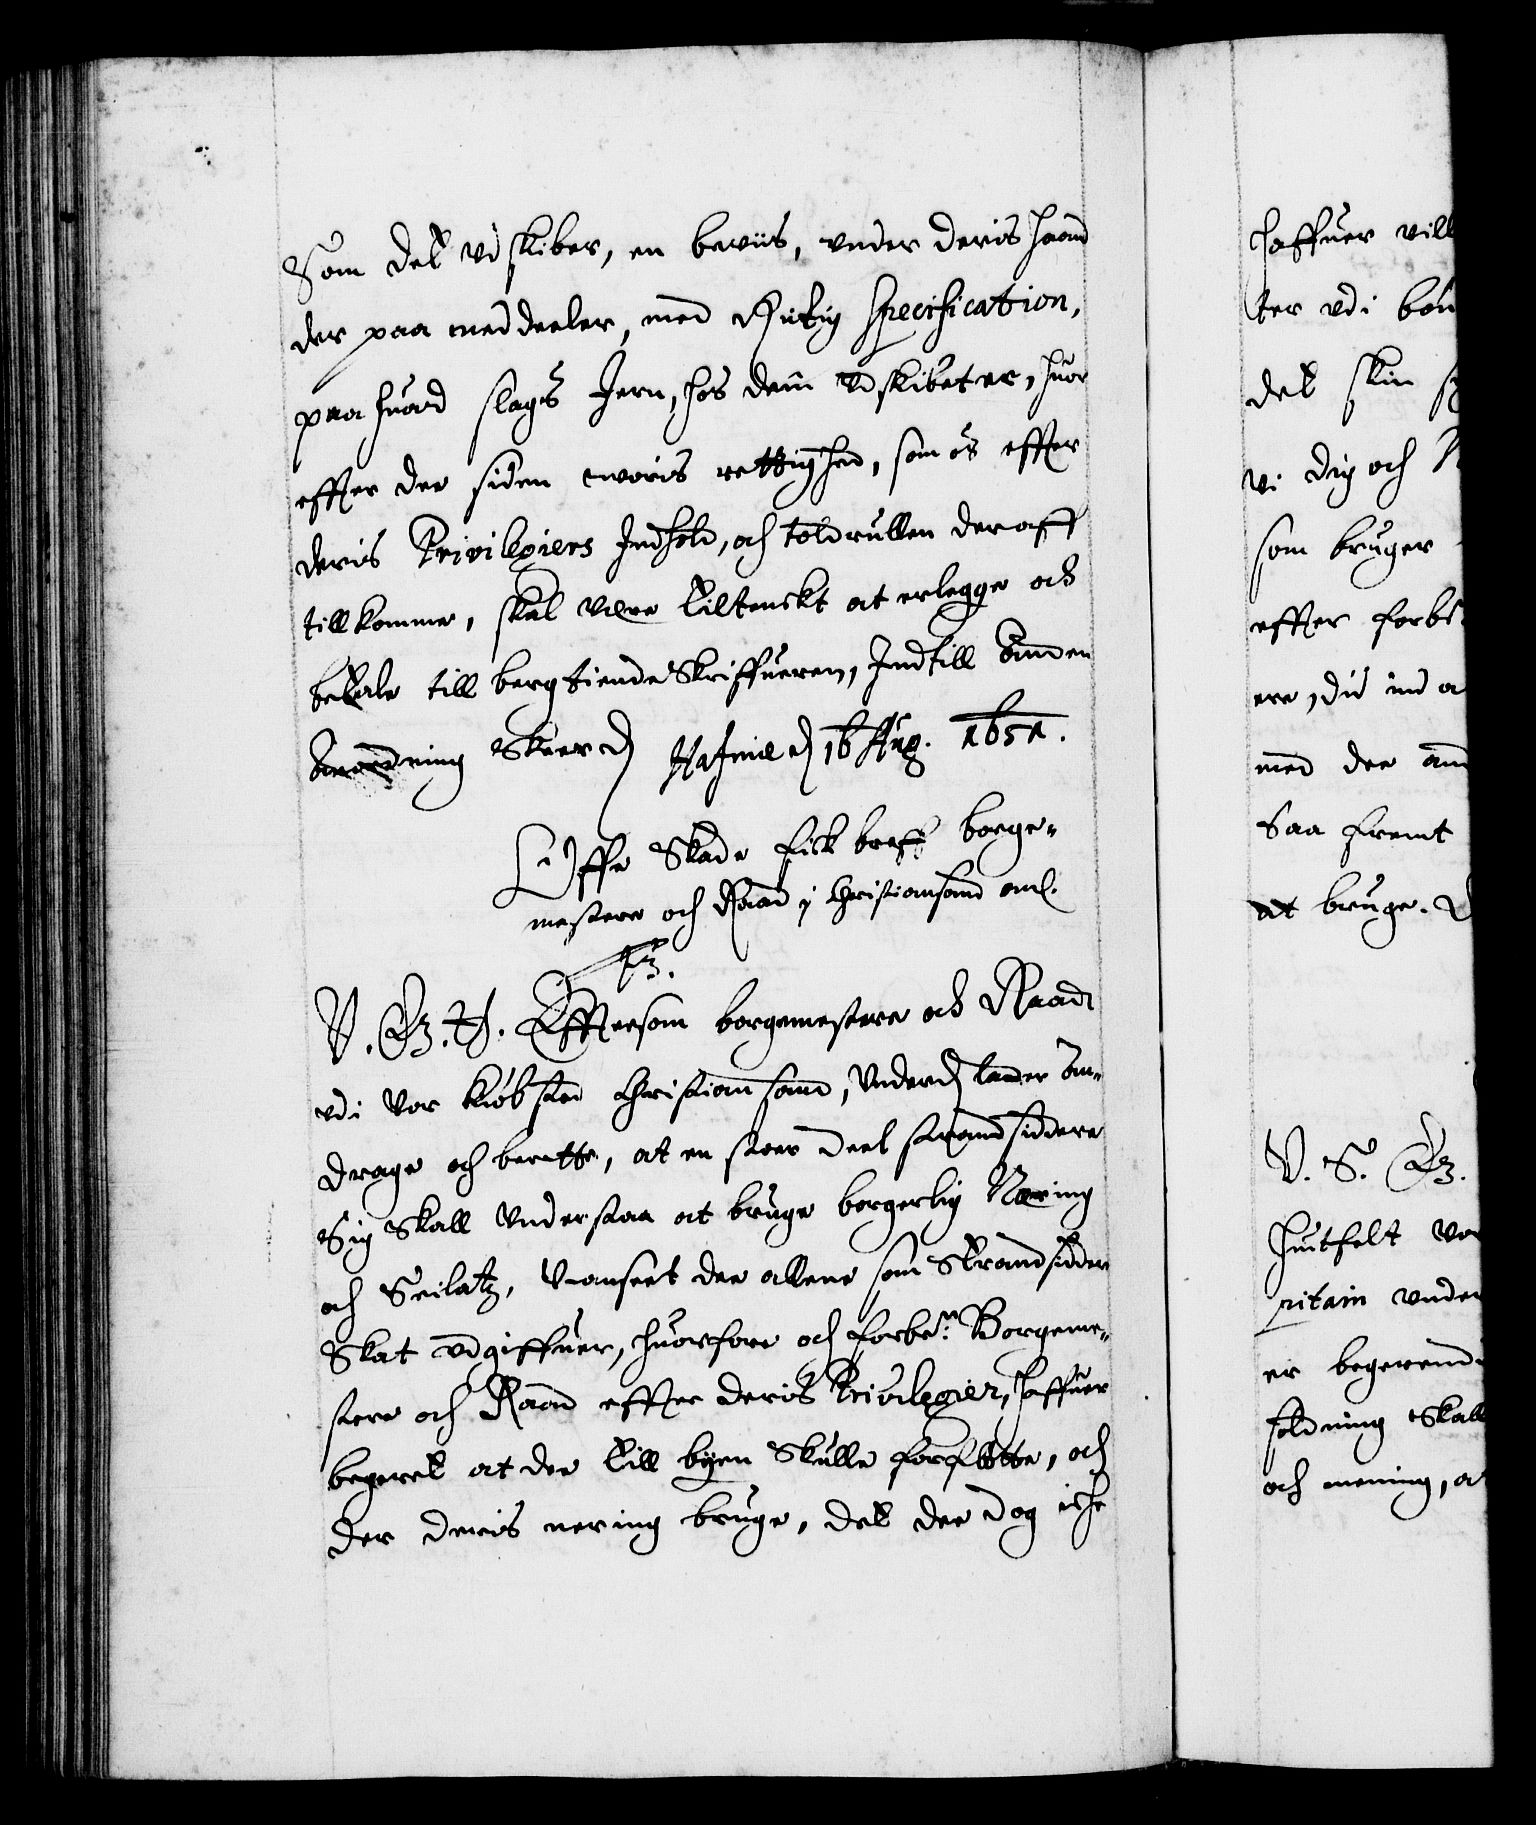 Som det ud skiber, en beviis, under deris haand
der paa meddeeler, med Rigtig Specification,
paa huad slags Jern, hos dem Udskibet er, huor
effter der siden woris rettighed, som os effter
deris Privilegiers Indhold, och toldrullen deraff
tillkomme, skal were tiltenckt at erlegge och
betale till bergtiende Skriffueren, Indtill Anden
Anordning Skeer Hafniæ 16 Aug. 1651.
Offe Skade fick breff borge-
mestere och Raad i Christiansand anl.
V. G. T. Efftersom borgemestere och Raad
udi Vor kiøbsted Christiansand, Underd lader An-
drage och berette, at en stoer deel strandsiddere
Sig skall understaa at bruge borgerlig Næring
och Seilatz, Uanseet dee allene som Strandsidder
Skat udgiffuer, huorfore och forbe:te Borgeme-
stere och Raad effter deris Privilegier, haffuer
begeret at dee till byen skulle forfløtte, och
der deris nering bruge, det dee dog iche
haffuer vill
ter udi
det skin
vi dig och
som bruger
effter forbe
ere, du
med dee
Saa fremt
at bruge.
V. S. G.
Huitfelt
pitain under
er begerend
foldning Skall
och mening, a